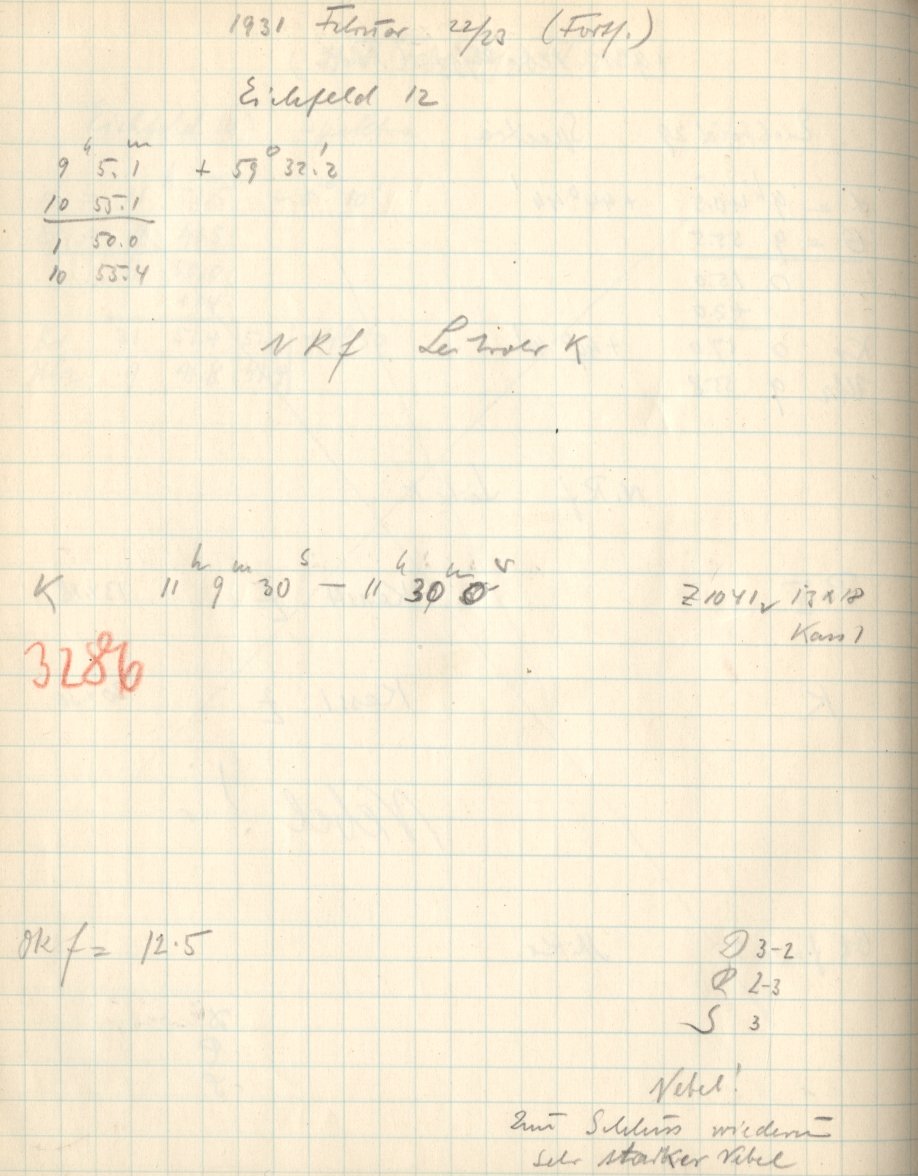 1931 Februar 22/23 (Forts.)
Eichfeld 12
9ʰ 5.1ᵐ + 59° 32.'2
10 55.1
1 50.0
10 55.4
NRf Leitrohr K
K 11ʰ 9ᵐ 30ˢ — 11ʰ 30ᵐ 0ˢ Z 1041, 13x18
Kass 1
3286
Ok f = 12.5
D 3-2
R 2-3
S 3
Nebel!
Zum Schluss wiederum
sehr starker Nebel